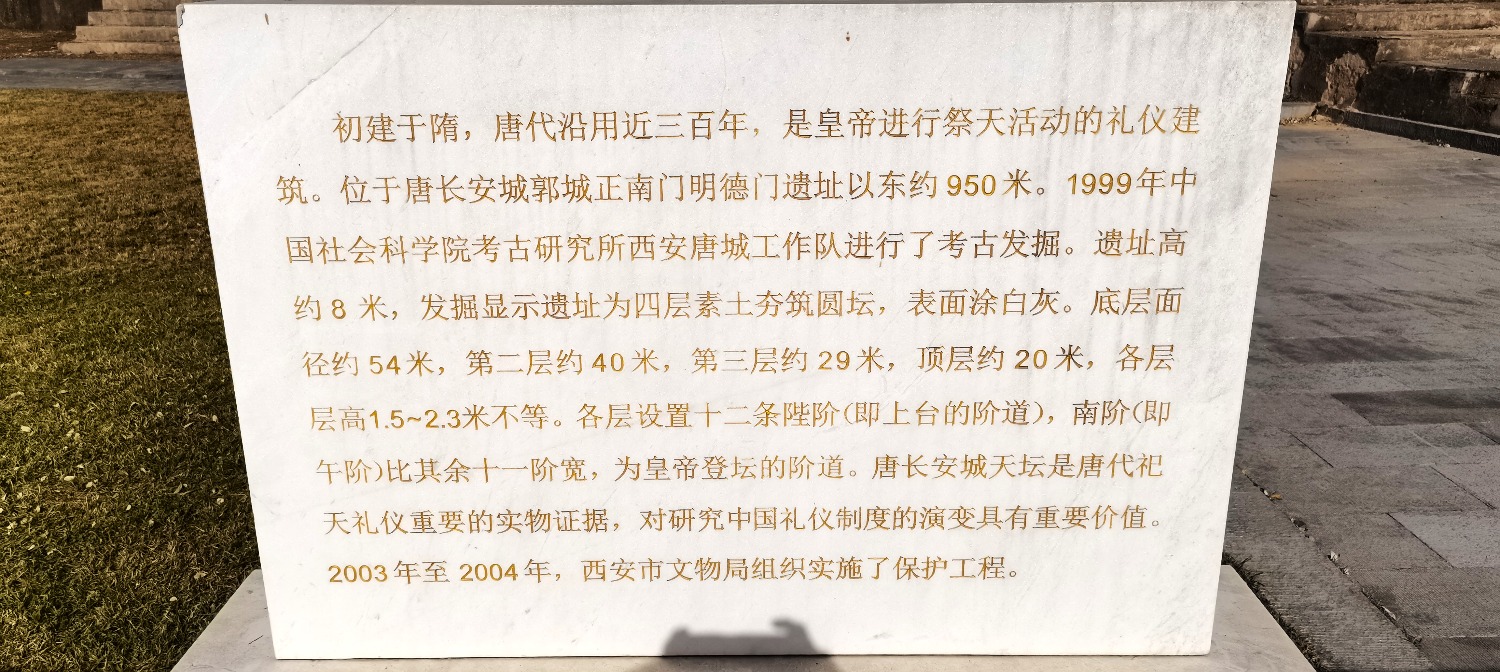 初建于隋，唐代沿用近三百年，是皇帝进行祭天活动的礼仪建
筑。位于唐长安城郭城正南门明德门遗址以东约950米。1999年中
国社会科学院考古研究所西安唐城工作队进行了考古发掘。遗址高
约8米，发掘显示遗址为四层素土夯筑圆坛，表面涂白灰。底层面
径约54米，第二层约40米，第三层约29米，顶层约20米，各层
层高1.5~2.3米不等。各层设置十二条陛阶(即上台的阶道)，南阶(即
午阶)比其余十一阶宽，为皇帝登坛的阶道。唐长安城天坛是唐代祀
天礼仪重要的实物证据，对研究中国礼仪制度的演变具有重要价值。
2003年至2004年，西安市文物局组织实施了保护工程。